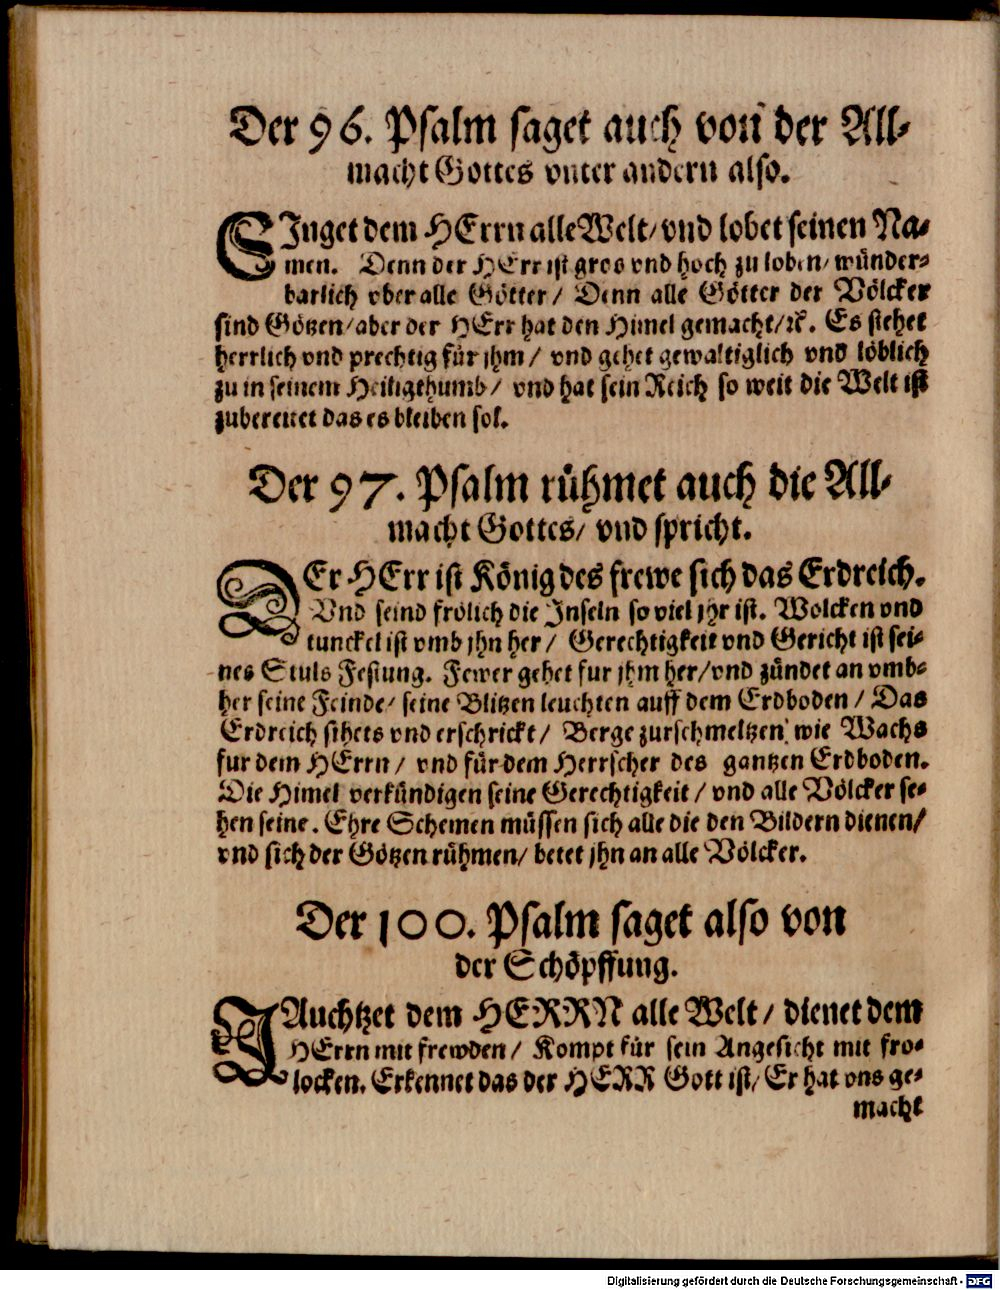 Der 96. Psalm saget auch von der All-
macht Gottes vnter andern also.
SInget dem HErrn alle Welt/ vnd lobet seinen Na-
men. Denn der HErr ist gros vnd hoch zu loben/ wünder-
barlich vber alle Götter/ Denn alle Götter der Völcker
sind Götzen/ aber der HErr hat den Himel gemacht/ ꝛc. Es stehet
herrlich vnd prechtig für jhm/ vnd gehet gewaltiglich vnd löblich
zu in seinem Heiligthumb/ vnd hat sein Reich so weit die Welt ist
zubereitet das es bleiben sol.
Der 97. Psalm rühmet auch die All-
macht Gottes/ vnd spricht.
DEr HErr ist König des frewe sich das Erdreich.
Vnd seind frölich die Inseln so viel jhr ist. Wolcken vnd
tunckel ist vmb jhn her/ Gerechtigkeit vnd Gericht ist sei-
nes Stuls Festung. Fewer gehet fur jhm her/ vnd zündet an vmb-
her seine Feinde/ seine Blitzen leuchten auff dem Erdboden/ Das
Erdreich sihets vnd erschrickt/ Berge zurschmeltzen wie Wachs
fur dem HErrn/ vnd für dem Herrscher des gantzen Erdboden.
Die Himel verkündigen seine Gerechtigkeit/ vnd alle Völcker se-
hen seine. Ehre Schemen müssen sich alle die den Bildern dienen/
vnd sich der Götzen rühmen/ betet jhn an alle Völcker.
Der 100. Psalm saget also von
der Schöpffung.
JAuchtzet dem HERRN alle Welt/ dienet dem
HErrn mit frewden/ Kompt für sein Angesicht mit fro-
locken. Erkennet das der HERR Gott ist/ Er hat vns ge-
macht
Digitalisierung gefördert durch die Deutsche Forschungsgemeinschaft - DFG